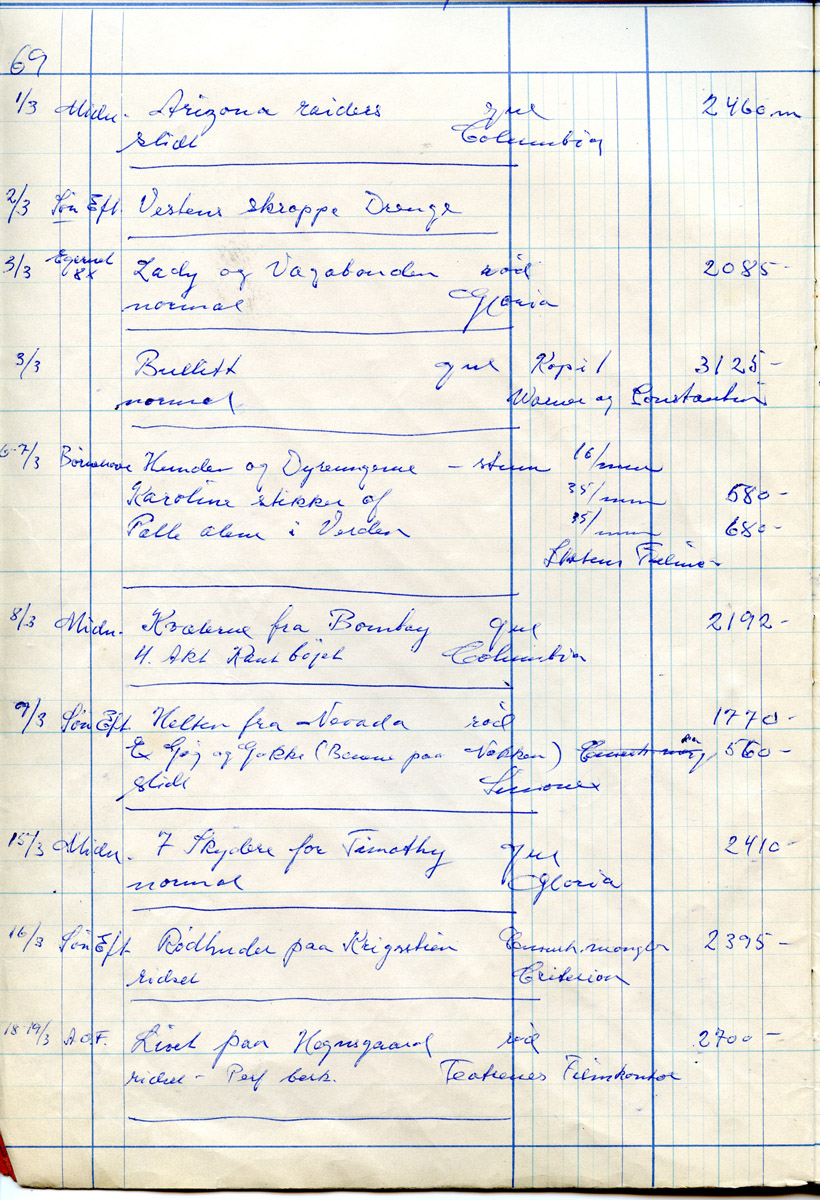 69
1/3 Midn. Arizona raiders gul 2460 m
slidt Columbia
2/3 Søn Eft. Vestens skrappe Drenge
3/3 Egernet 8x Lady og Vagabonden rød 2085-
normal Gloria
3/3 Bullitt gul Kopi 1 3125-
normal Warner og Constantin
6-7/3 Hunden og Dyreungerne - stum 16/mm
Karoline stikker af 35/mm 580-
Palle alene i Verden 35/mm 680-
Statens Film
8/3 Midn. Kvalerne fra Bombay gul 2192-
4. Akt Kant bøjet Columbia
9/3 Søn Eft. Helten fra Nevada rød 1770-
Ex Gøg og Gokke (Benene paa Nakken) 560-
slidt
15/3 Midn. 7 Skydere for Timothy gul 2410-
normal Gloria
16/3 Søn Eft. Rødhuder paa Krigsstien Censurk. mangler 2395-
ridset Criterion
18-19/3 A.O.F. Livet paa Hegnsgaard rød 2700-
ridset - Perf besk. Teatrenes Filmkontor